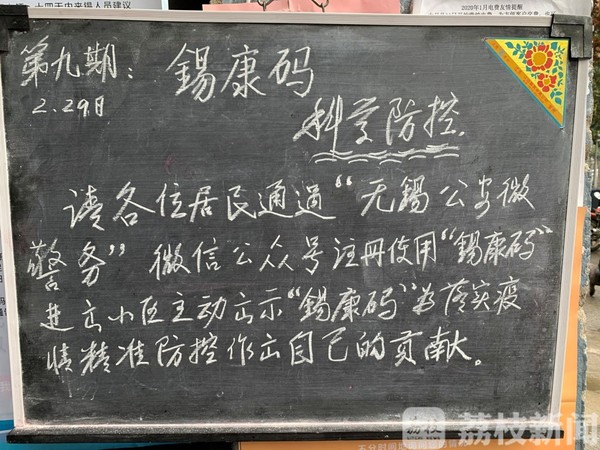 十四天内来锡人员建议
2020年1月电费友情提醒
第九期：锡康码
2.29日
科学防控
请各位居民通過“无锡公安微
警务”微信公众号注册使用“锡康码”
进出小区主动出示“锡康码”为落实疫
情精准防控作出自己的贡献。
荔枝
荔枝新闻